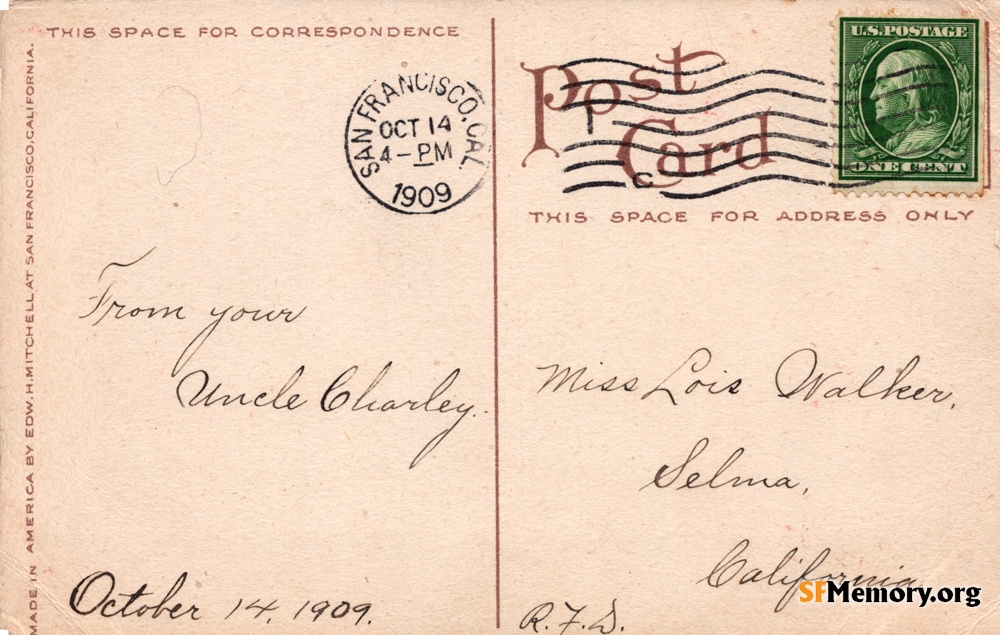 THIS SPACE FOR CORRESPONDENCE
MADE IN AMERICA BY EDW. H. MITCHELL AT SAN FRANCISCO, CALIFORNIA.
SAN FRANCISCO, CAL.
OCT 14
4-PM
1909
From your
Uncle Charley.
October 14, 1909.
Post
Card
I
C
U.S. POSTAGE
ONE CENT
THIS SPACE FOR ADDRESS ONLY
Miss Lois Walker,
Selma,
California
R.F.D.
SFMemory.org